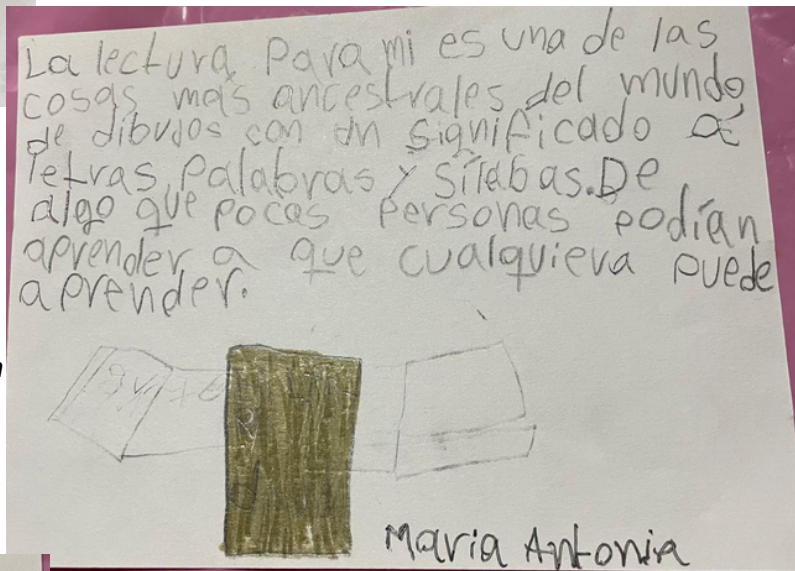 La lectura para mi es una de las
cosas mas ancestrales del mundo
de dibujos con un significado a
letras, palabras y sílabas. De
algo que pocas personas podían
aprender a que cualquiera puede
aprender.
Maria Antonia